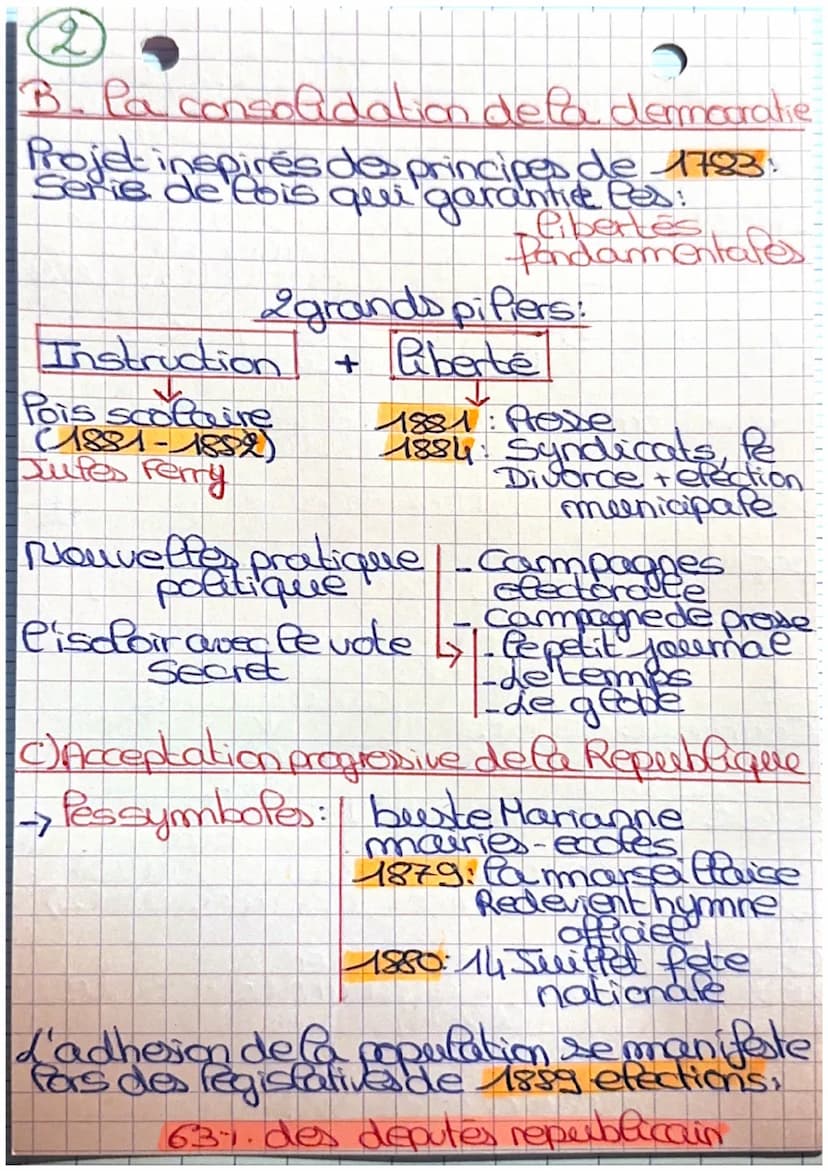 2
B- la consolidation de la democratie
Projet inspirés des principes de 1793:
Serie de lois qui garantie les:
libertés
fondamentales
2 grands piliers:
Instruction + liberté
lois scolaire
(1881-1882)
Jules Ferry
1881: Presse
1884: Syndicats, le
Divorce + eléction
municipale
Nouvelles pratique
politique
l'isoloir avec le vote
Secret
- Campagnes
electorale
- campagne de presse
- le petit journal
- le temps
- le globe
C) Acceptation progressive de la Republique
→ les symboles:
buste Marianne
mairies - ecoles
1879: la marseillaise
Redevient hymne
officiel
1880: 14 Juillet fete
nationale
L'adhesion de la population se manifeste
lors des legislatives de 1889 elections:
63%. des deputés republicain